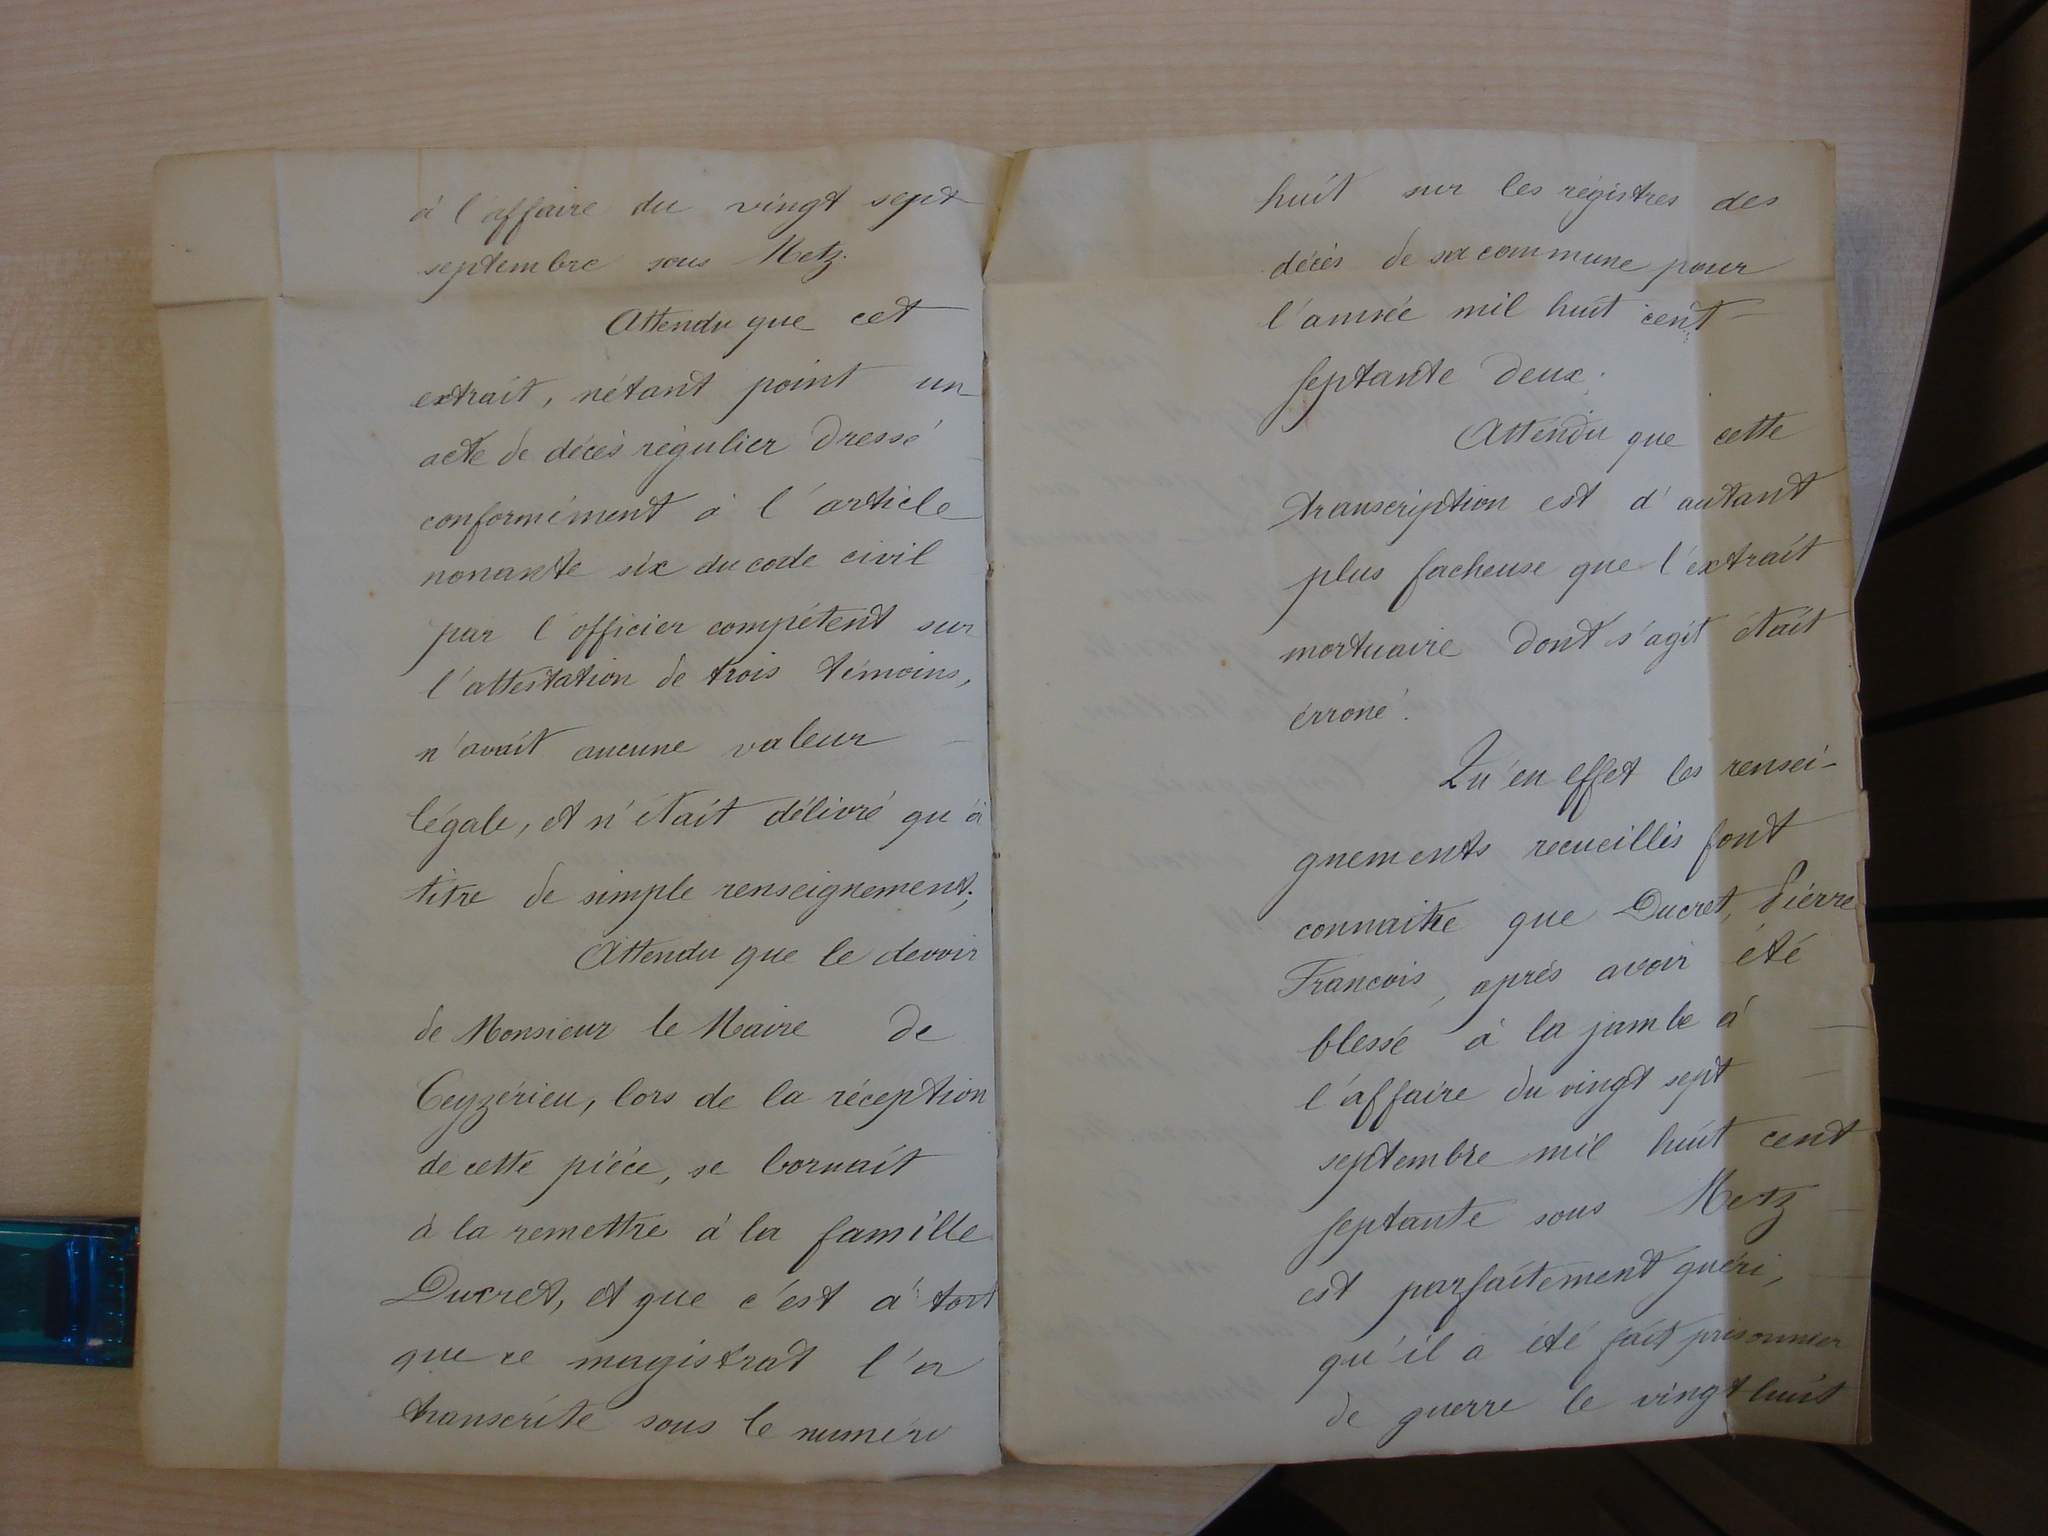 à l'affaire du vingt sept
septembre sous Metz.
Attendu que cet
extrait, n'étant point un
acte de décès régulier dressé
conformément à l'article
nonante six du code civil
par l'officier compétent sur
l'attestation de trois témoins,
n'avait aucune valeur
légale, et n'était délivré qu'à
titre de simple renseignement;
Attendu que le devoir
de Monsieur le Maire de
Ceyzérieu, lors de la réception
de cette pièce, se bornait
à la remettre à la famille
Ducret, et que c'est à tort
que ce magistrat l'a
transcrite sous le numéro
huit sur les régistres des
décès de sa commune pour
l'année mil huit cent
septante deux.
Attendu que cette
transcription est d'autant
plus facheuse que l'extrait
mortuaire dont s'agit était
érroné.
Qu'en effet les rensei-
gnements recueillis font
connaitre que Ducret, Pierre
Francois, après avoir été
blessé à la jambe à
l'affaire du vingt sept
septembre mil huit cent
septante sous Metz
est parfaitement guéri,
qu'il a été fait prisonnier
de guerre le vingt huit